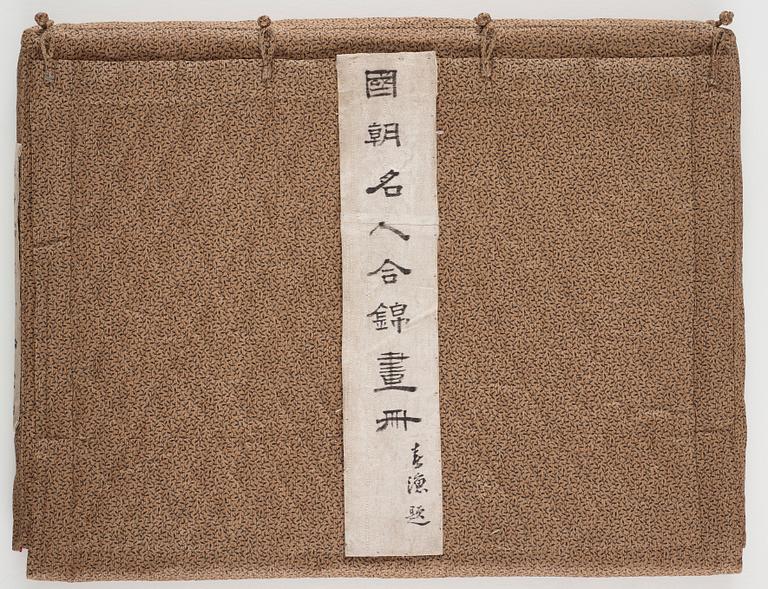 國朝名人合錦畫冊
春漁題